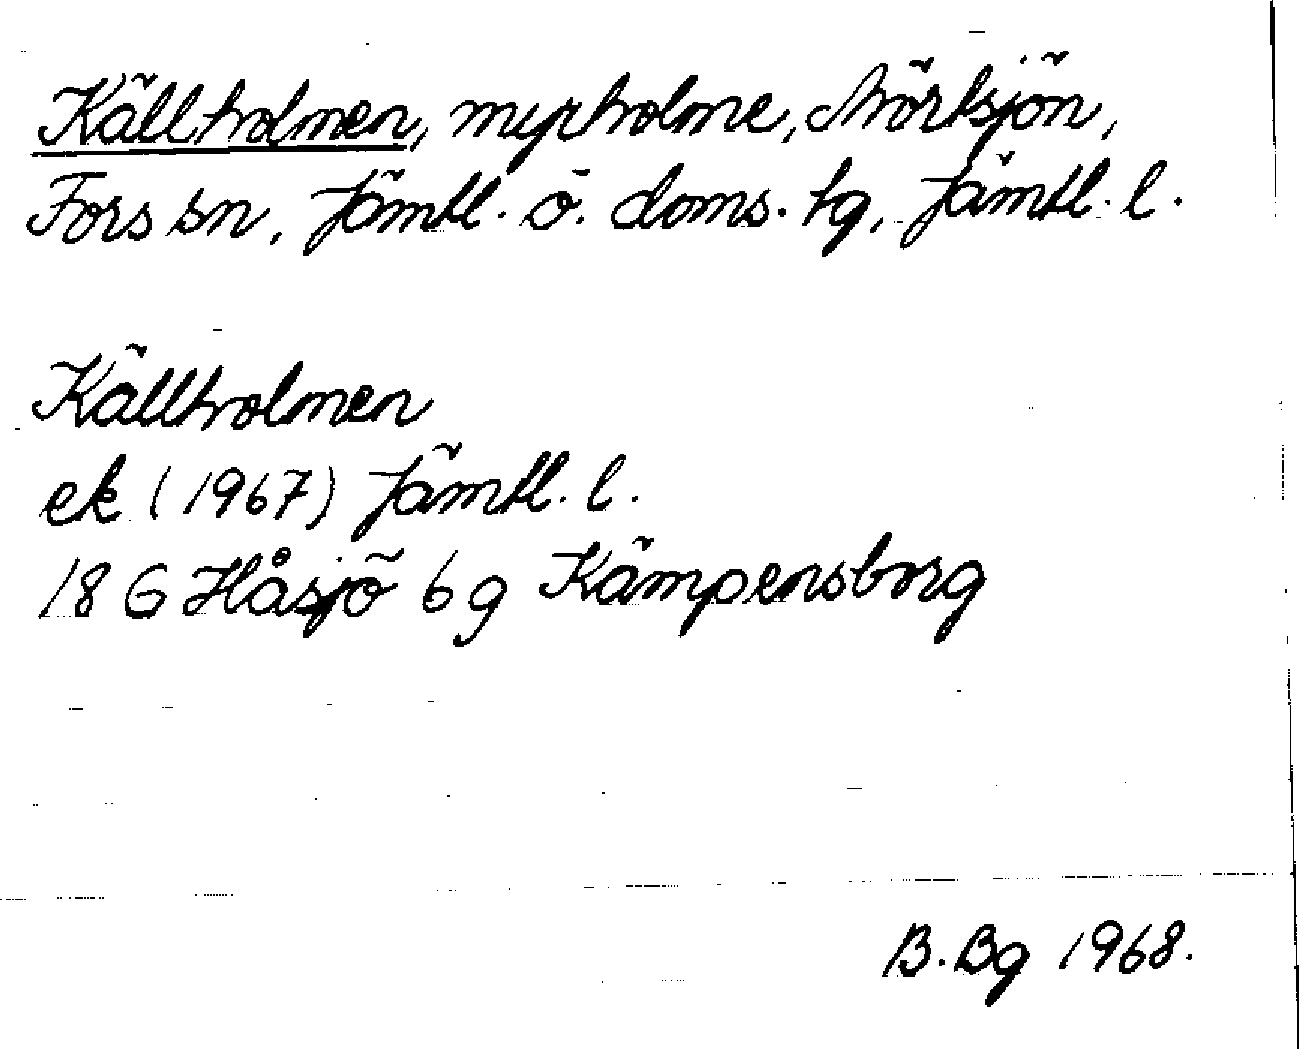 Källholmen, myrholme, Mörtsjön,
Fors sn, Jämtl. ö. doms. tg, Jämtl. l.
Källholmen
ek (1967) Jämtl. l.
18 G Håsjö 6 g Kämpensborg
B. Bg 1968.